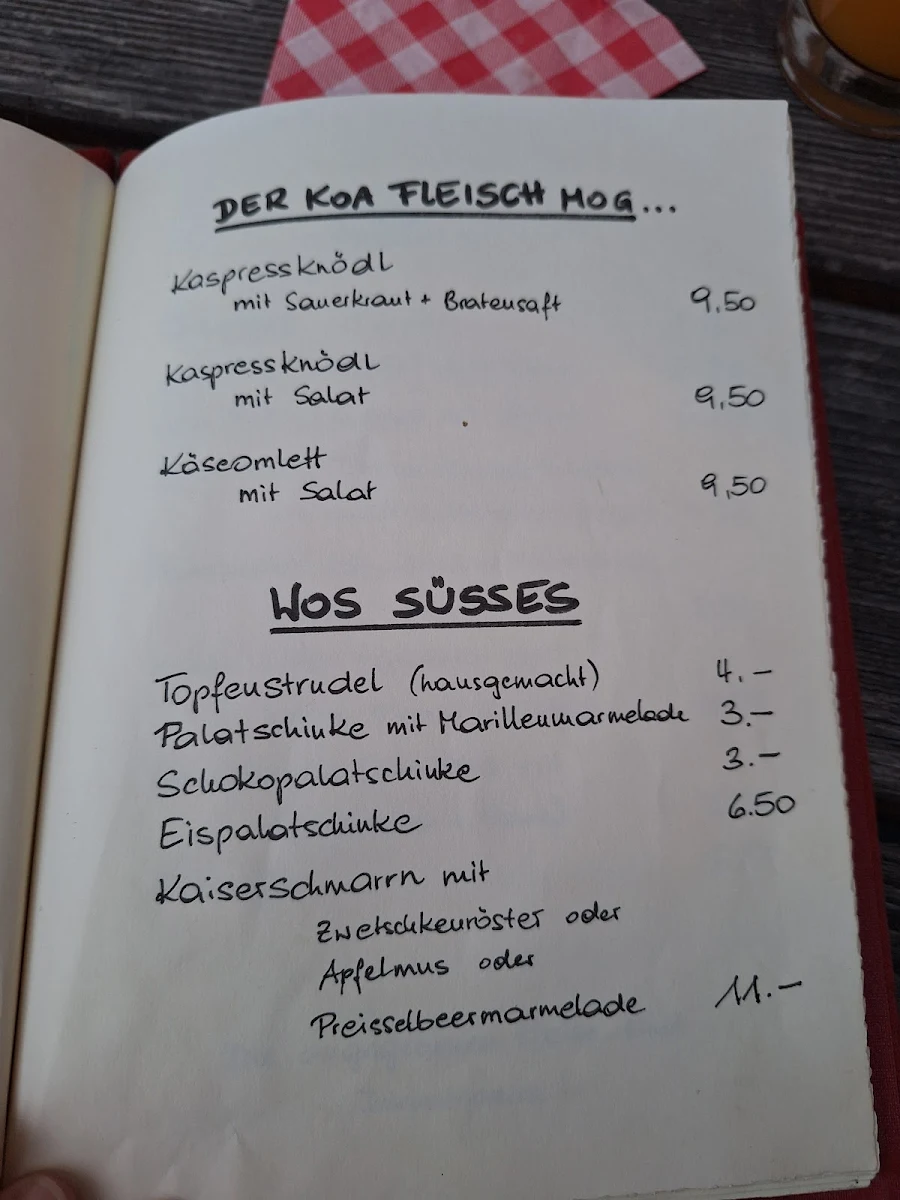 DER KOA FLEISCH MOG...
Kaspressknödl
mit Sauerkraut + Bratensaft 9.50
Kaspressknödl
mit Salat 9,50
Käseomlett
mit Salat 9,50
WOS SÜSSES
Topfenstrudel (hausgemacht) 4.-
Palatschinke mit Marillenmarmelade 3.-
Schokopalatschinke 3.-
Eispalatschinke 6.50
Kaiserschmarrn mit
Zwetschkenröster oder
Apfelmus oder
Preisselbeermarmelade 11.-